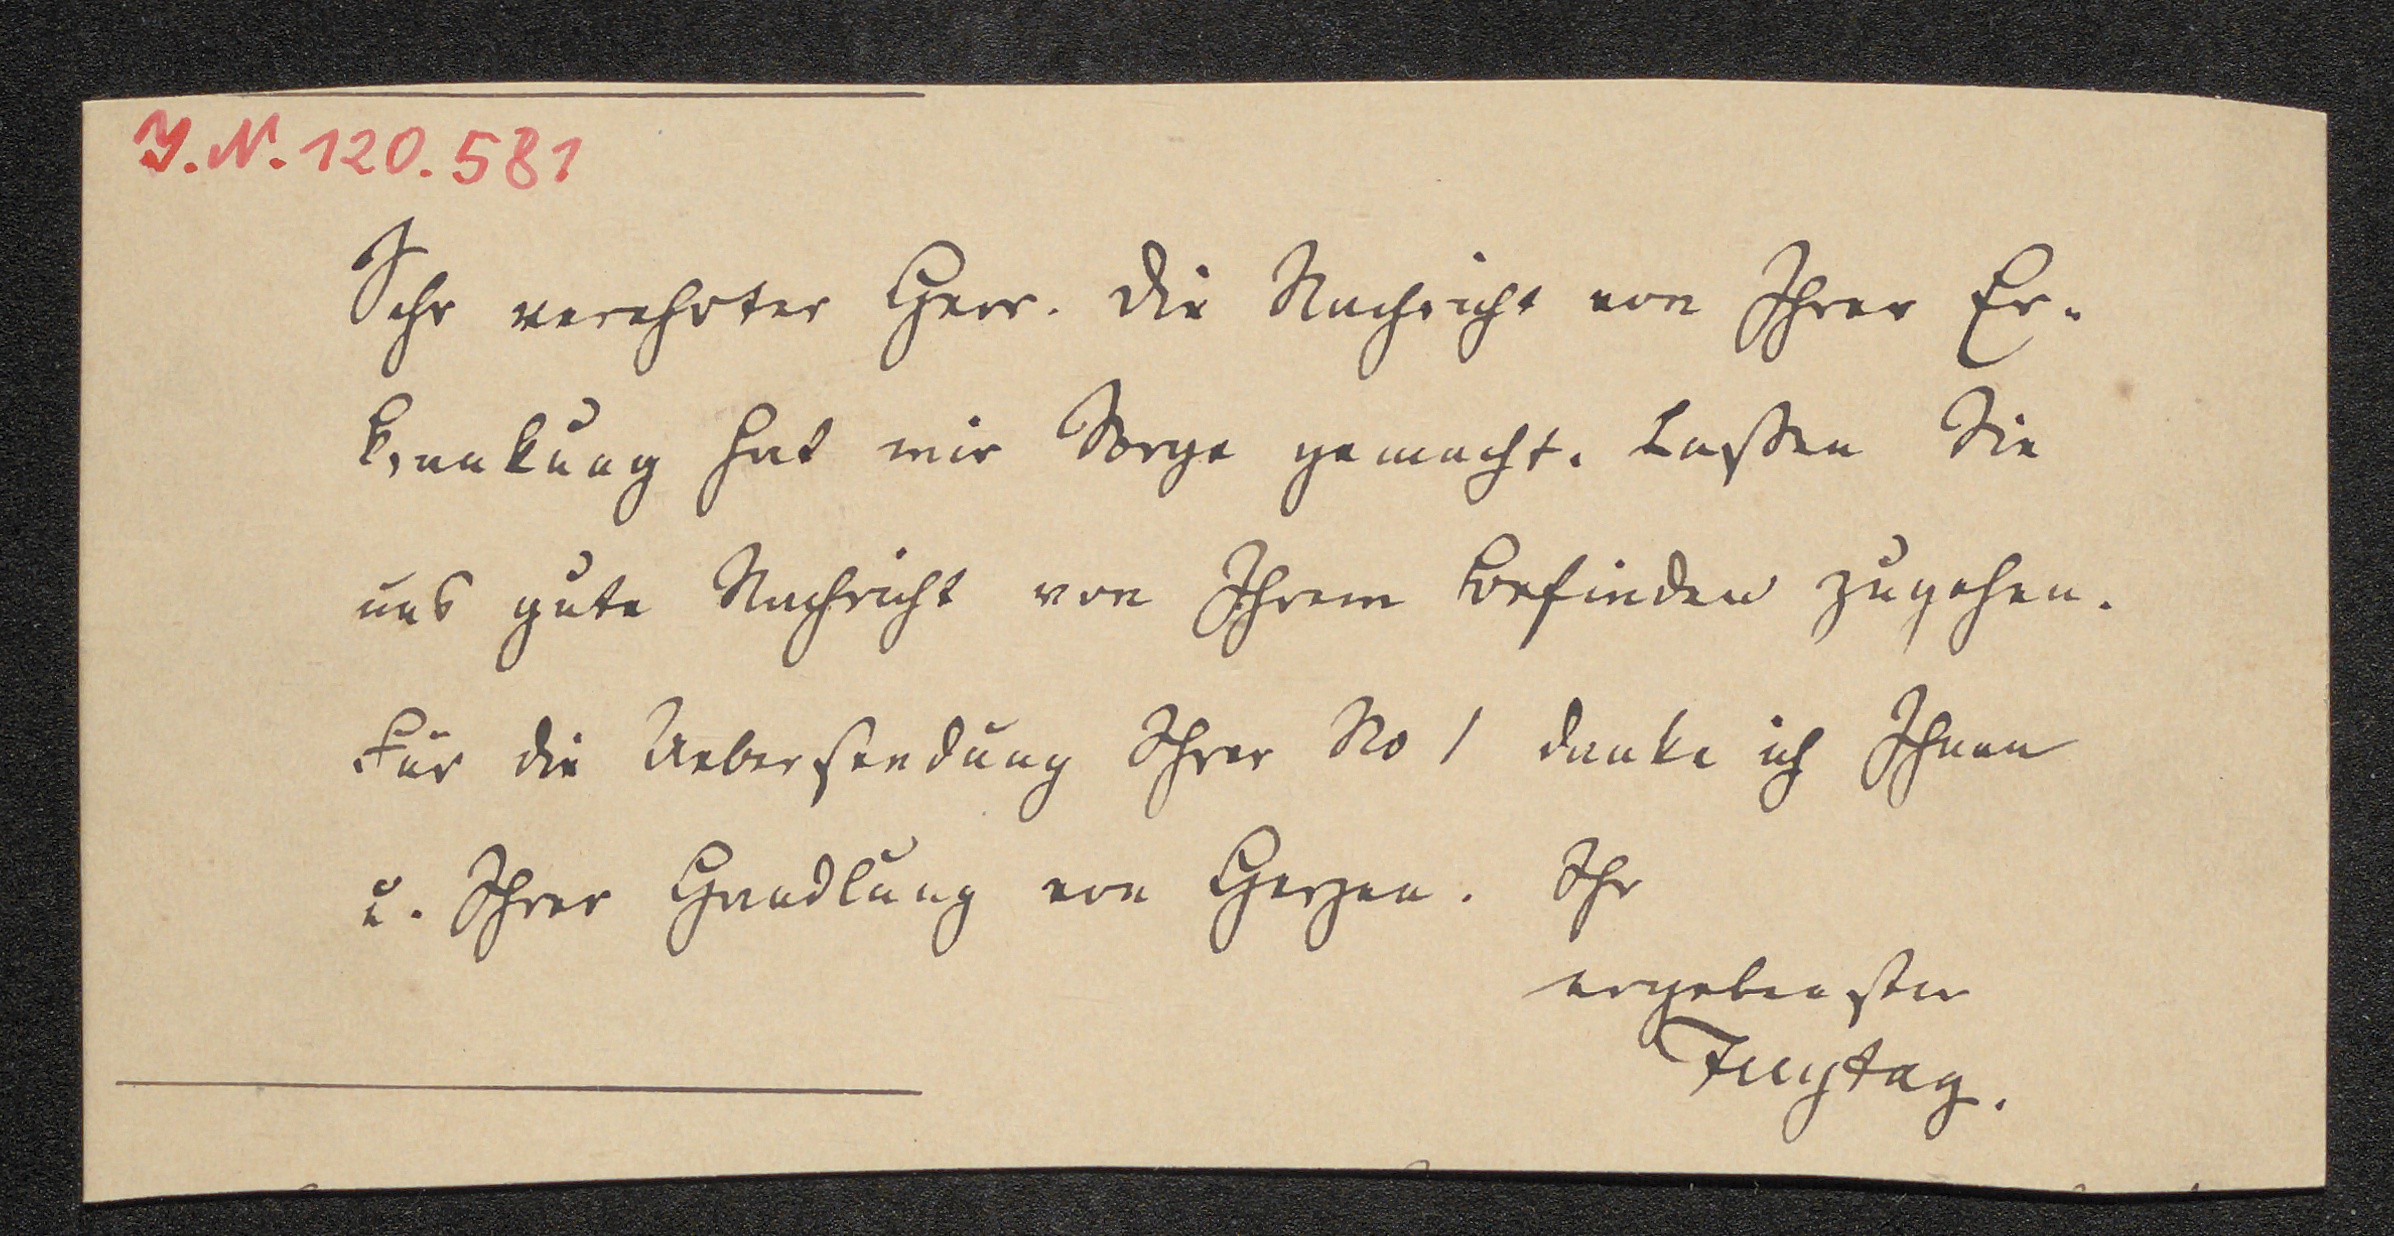 I.N. 120.581
Sehr verehrter Herr. Die Nachricht von Ihrer Er-
krankung hat mir Sorge gemacht. Laßen Sie
uns gute Nachricht von Ihrem Befinden zugehen.
Für die Uebersendung Ihrer No 1 danke ich Ihnen
u. Ihrer Handlung von Herzen. Ihr
ergebenster
Freytag.